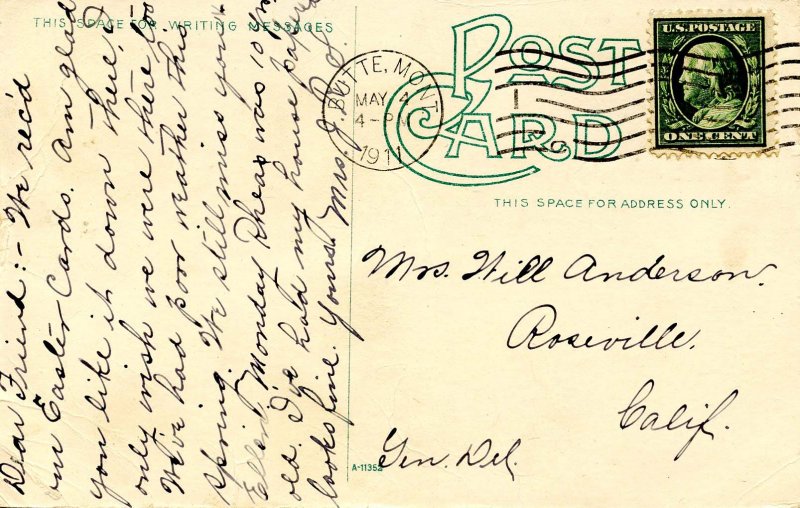 THIS SPACE FOR WRITING MESSAGES
Dear Friend:- We rec'd
our Easter Cards. Am glad
you like it down there, I
only wish we were there too
We've had poor weather this
spring. We still miss you.
Monday Rheas was 10 yrs
old. I've had my house papered
looks fine. Yours Mrs. J.
POST CARD
BUTTE, MONT.
MAY 4
4-P
1911
U.S. POSTAGE
ONE CENT
THIS SPACE FOR ADDRESS ONLY.
Mrs. Will Anderson.
Roseville.
Calif.
Gen. Del.
A-11352